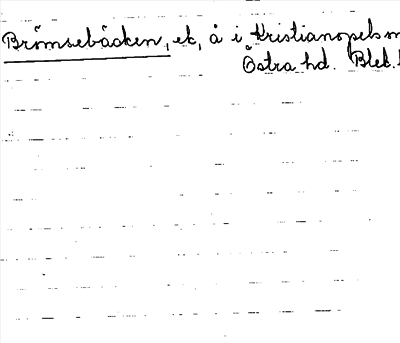 Brömsebäcken, ek, å i Kristianopels sn
Östra hd. Blek.